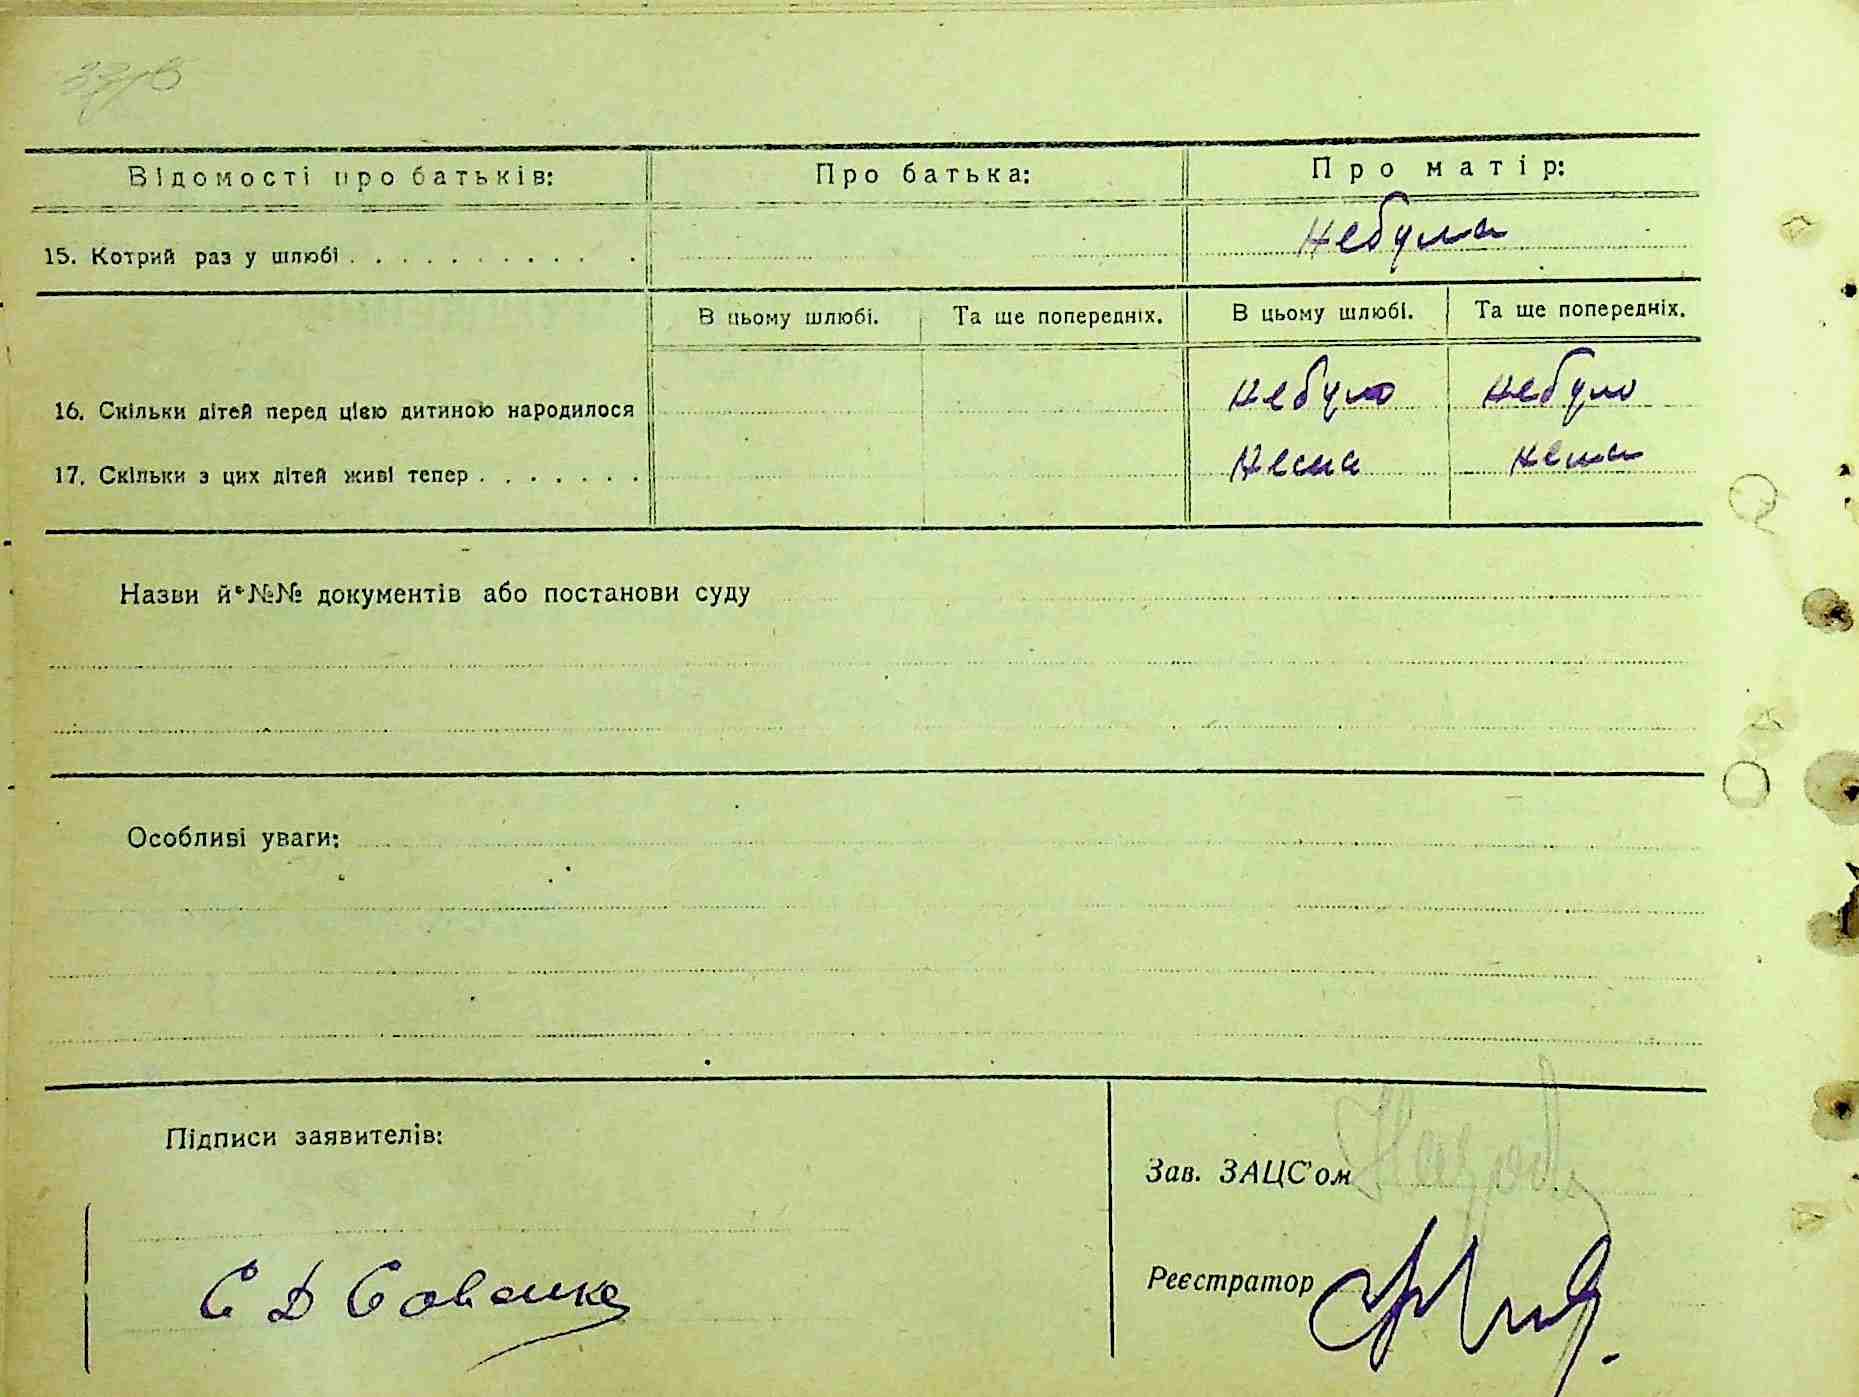 Відомості про батьків: Про батька: Про матір:
15. Котрий раз у шлюбі . . . . . . . . . . . небула
В цьому шлюбі. Та ще попередніх. В цьому шлюбі. Та ще попередніх.
16. Скільки дітей перед цією дитиною народилося небуло небуло
17. Скільки з цих дітей живі тепер . . . . . . . нема нема
Назви й №№ документів або постанови суду
Особливі уваги:
Підписи заявителів:
Зав. ЗАЦС'ом
Реєстратор
Є Д Саванко